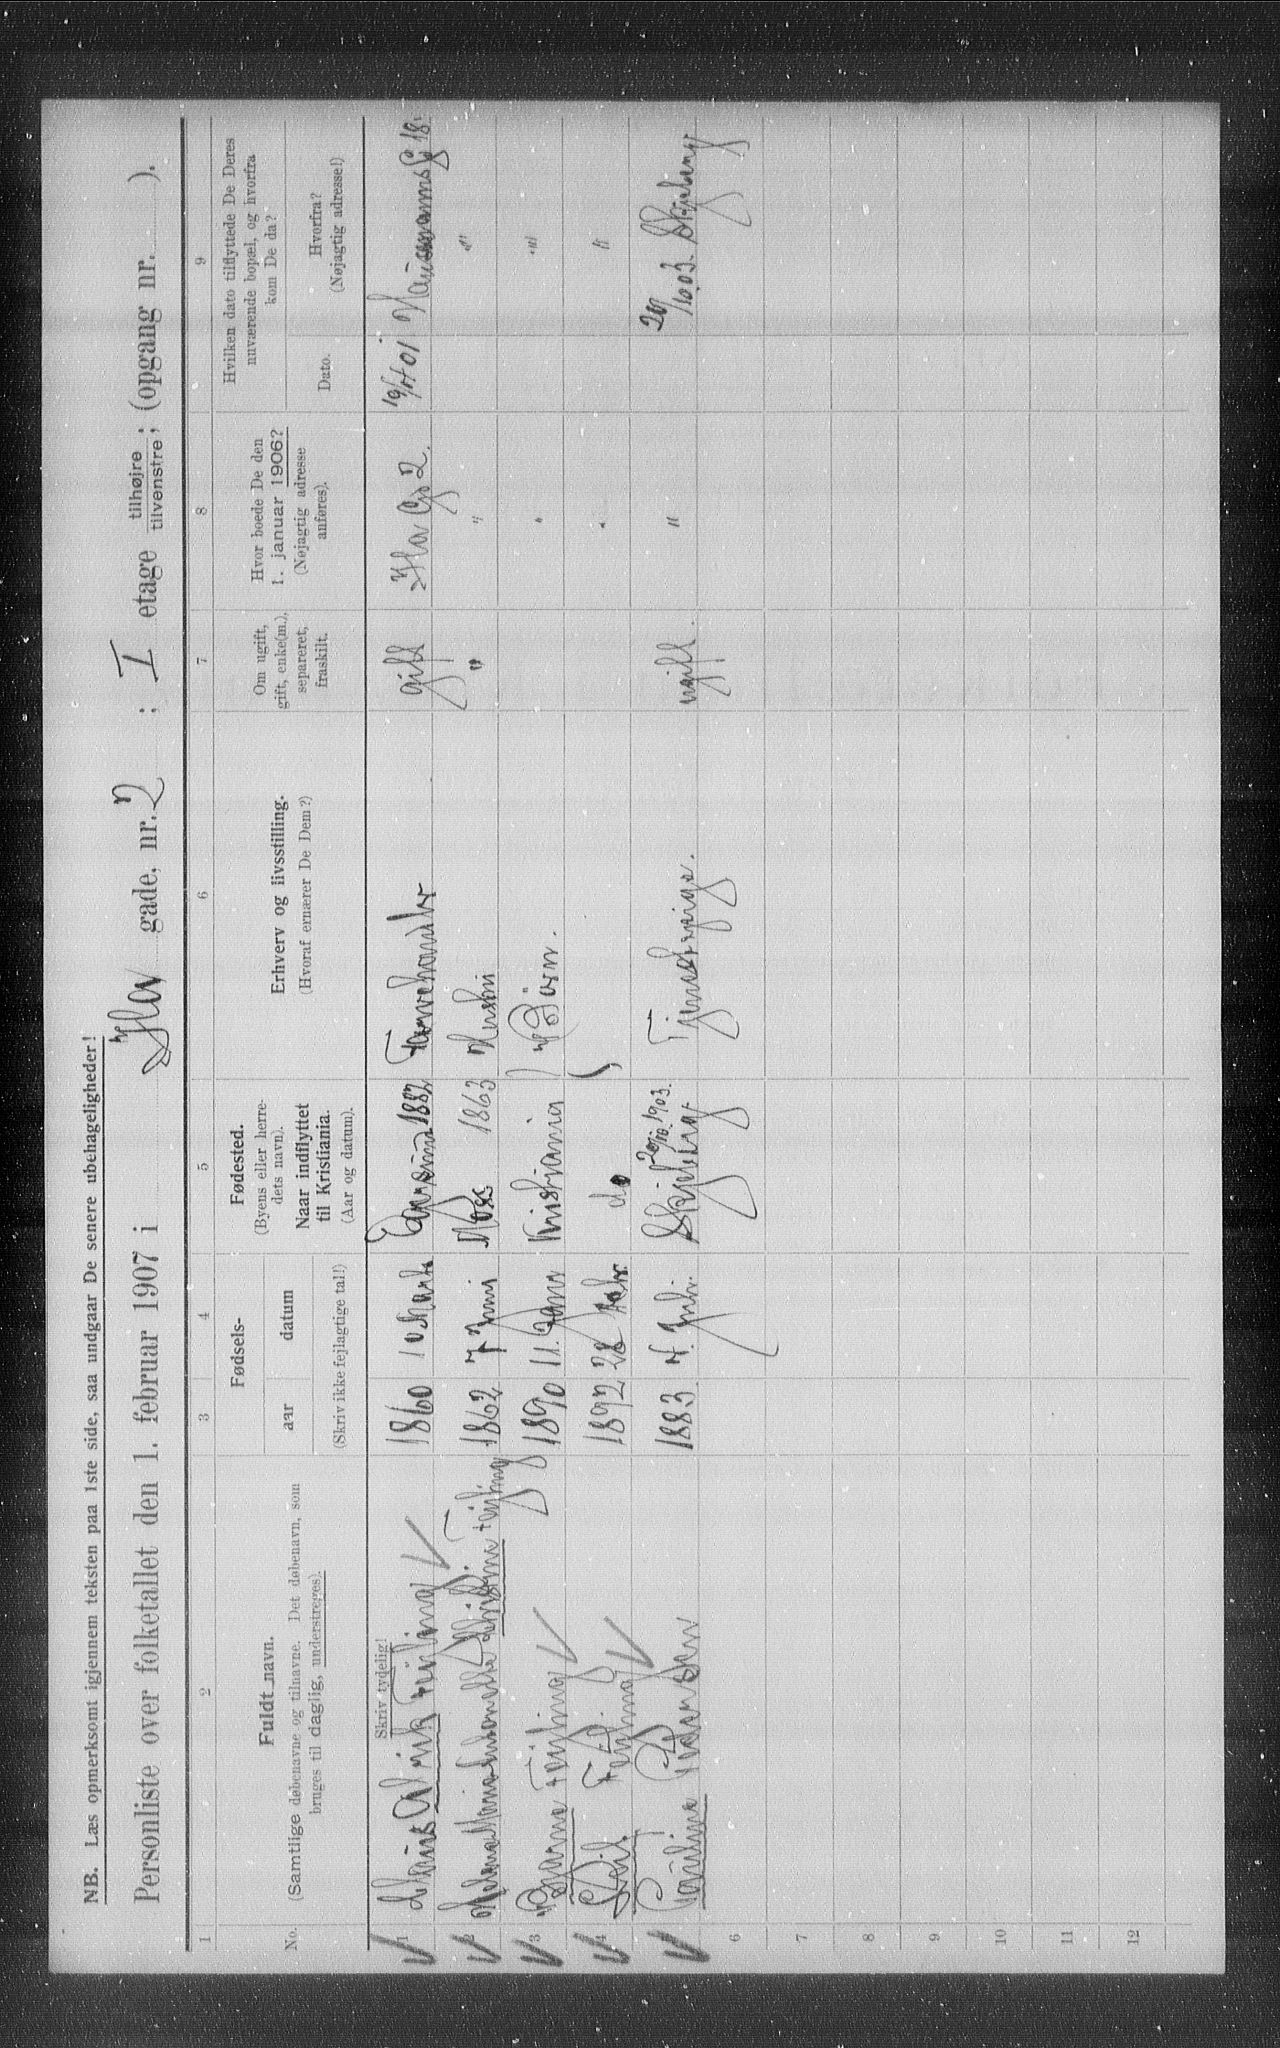 NB. Læs opmerksomt igjennem teksten paa 1ste side, saa undgaar De senere ubehageligheder!
Personliste over folketallet den 1. februar 1907 i Ila gade, nr. 2 ; I etage tilhøjre tilvenstre; (opgang nr. ).
1 2 3 4 5 6 7 8 9
No.
Fuldt navn.
(Samtlige døbenavne og tilnavne. Det døbenavn, som
bruges til daglig, understreges).
Skriv tydelig!
Fødsels-
aar datum
(Skriv ikke fejlagtige tal!)
Fødested.
(Byens eller herre-
dets navn).
Naar indflyttet
til Kristiania.
(Aar og datum).
Erhverv og livsstilling.
(Hvoraf ernærer De Dem?)
Om ugift,
gift, enke(m.),
separeret,
fraskilt.
Hvor boede De den
1. januar 1906?
(Nøjagtig adresse
anføres).
Hvilken dato tilflyttede De Deres
nuværende bopæl, og hvorfra
kom De da?
Dato.
Hvorfra?
(Nøjagtig adresse!)
1 Feiling 1860 10 Marts 1882 Farvehandler gift Ila Gd 2. 19/4 01 Hausmannsg 18.
2 Feiling 1862 7 Juni Moss 1863 Hustru " " "
3 Bjarne Feiling 1890 11. Janr Kristiania Børn. " "
4 Feiling 1892 28 Febr. do " "
5 Paulina Pedersen 1883 4. Juli. Skjeberg 20/10. 1903. Tjenestepige. ugift. " 20/10.03. Skjeberg
6
7
8
9
10
11
12